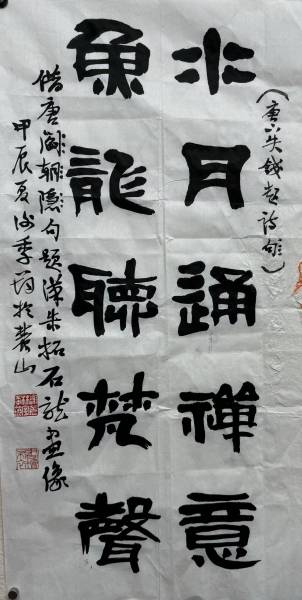 (唐 錢起詩句)
水月通禪意
魚龍聽梵聲
借唐 朝隱句題漢朱拓石龍画像
甲辰夏 季 於麓山